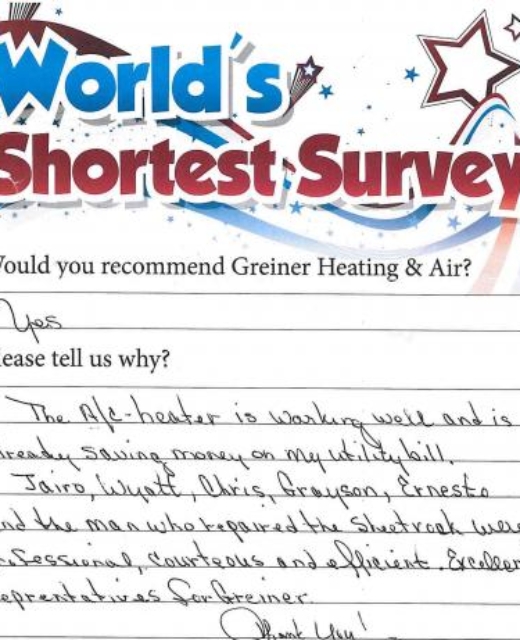 World's
Shortest Survey
Would you recommend Greiner Heating & Air?
Yes
lease tell us why?
The A/C-heater is working well and is
lready saving money on my utility bill.
Jairo, Wyatt, Chris, Grayson, Ernesto
nd the man who repaired the sheetrock were
ofessional, courteous and efficient. Excellen
eprentatives for Greiner.
Thank You!